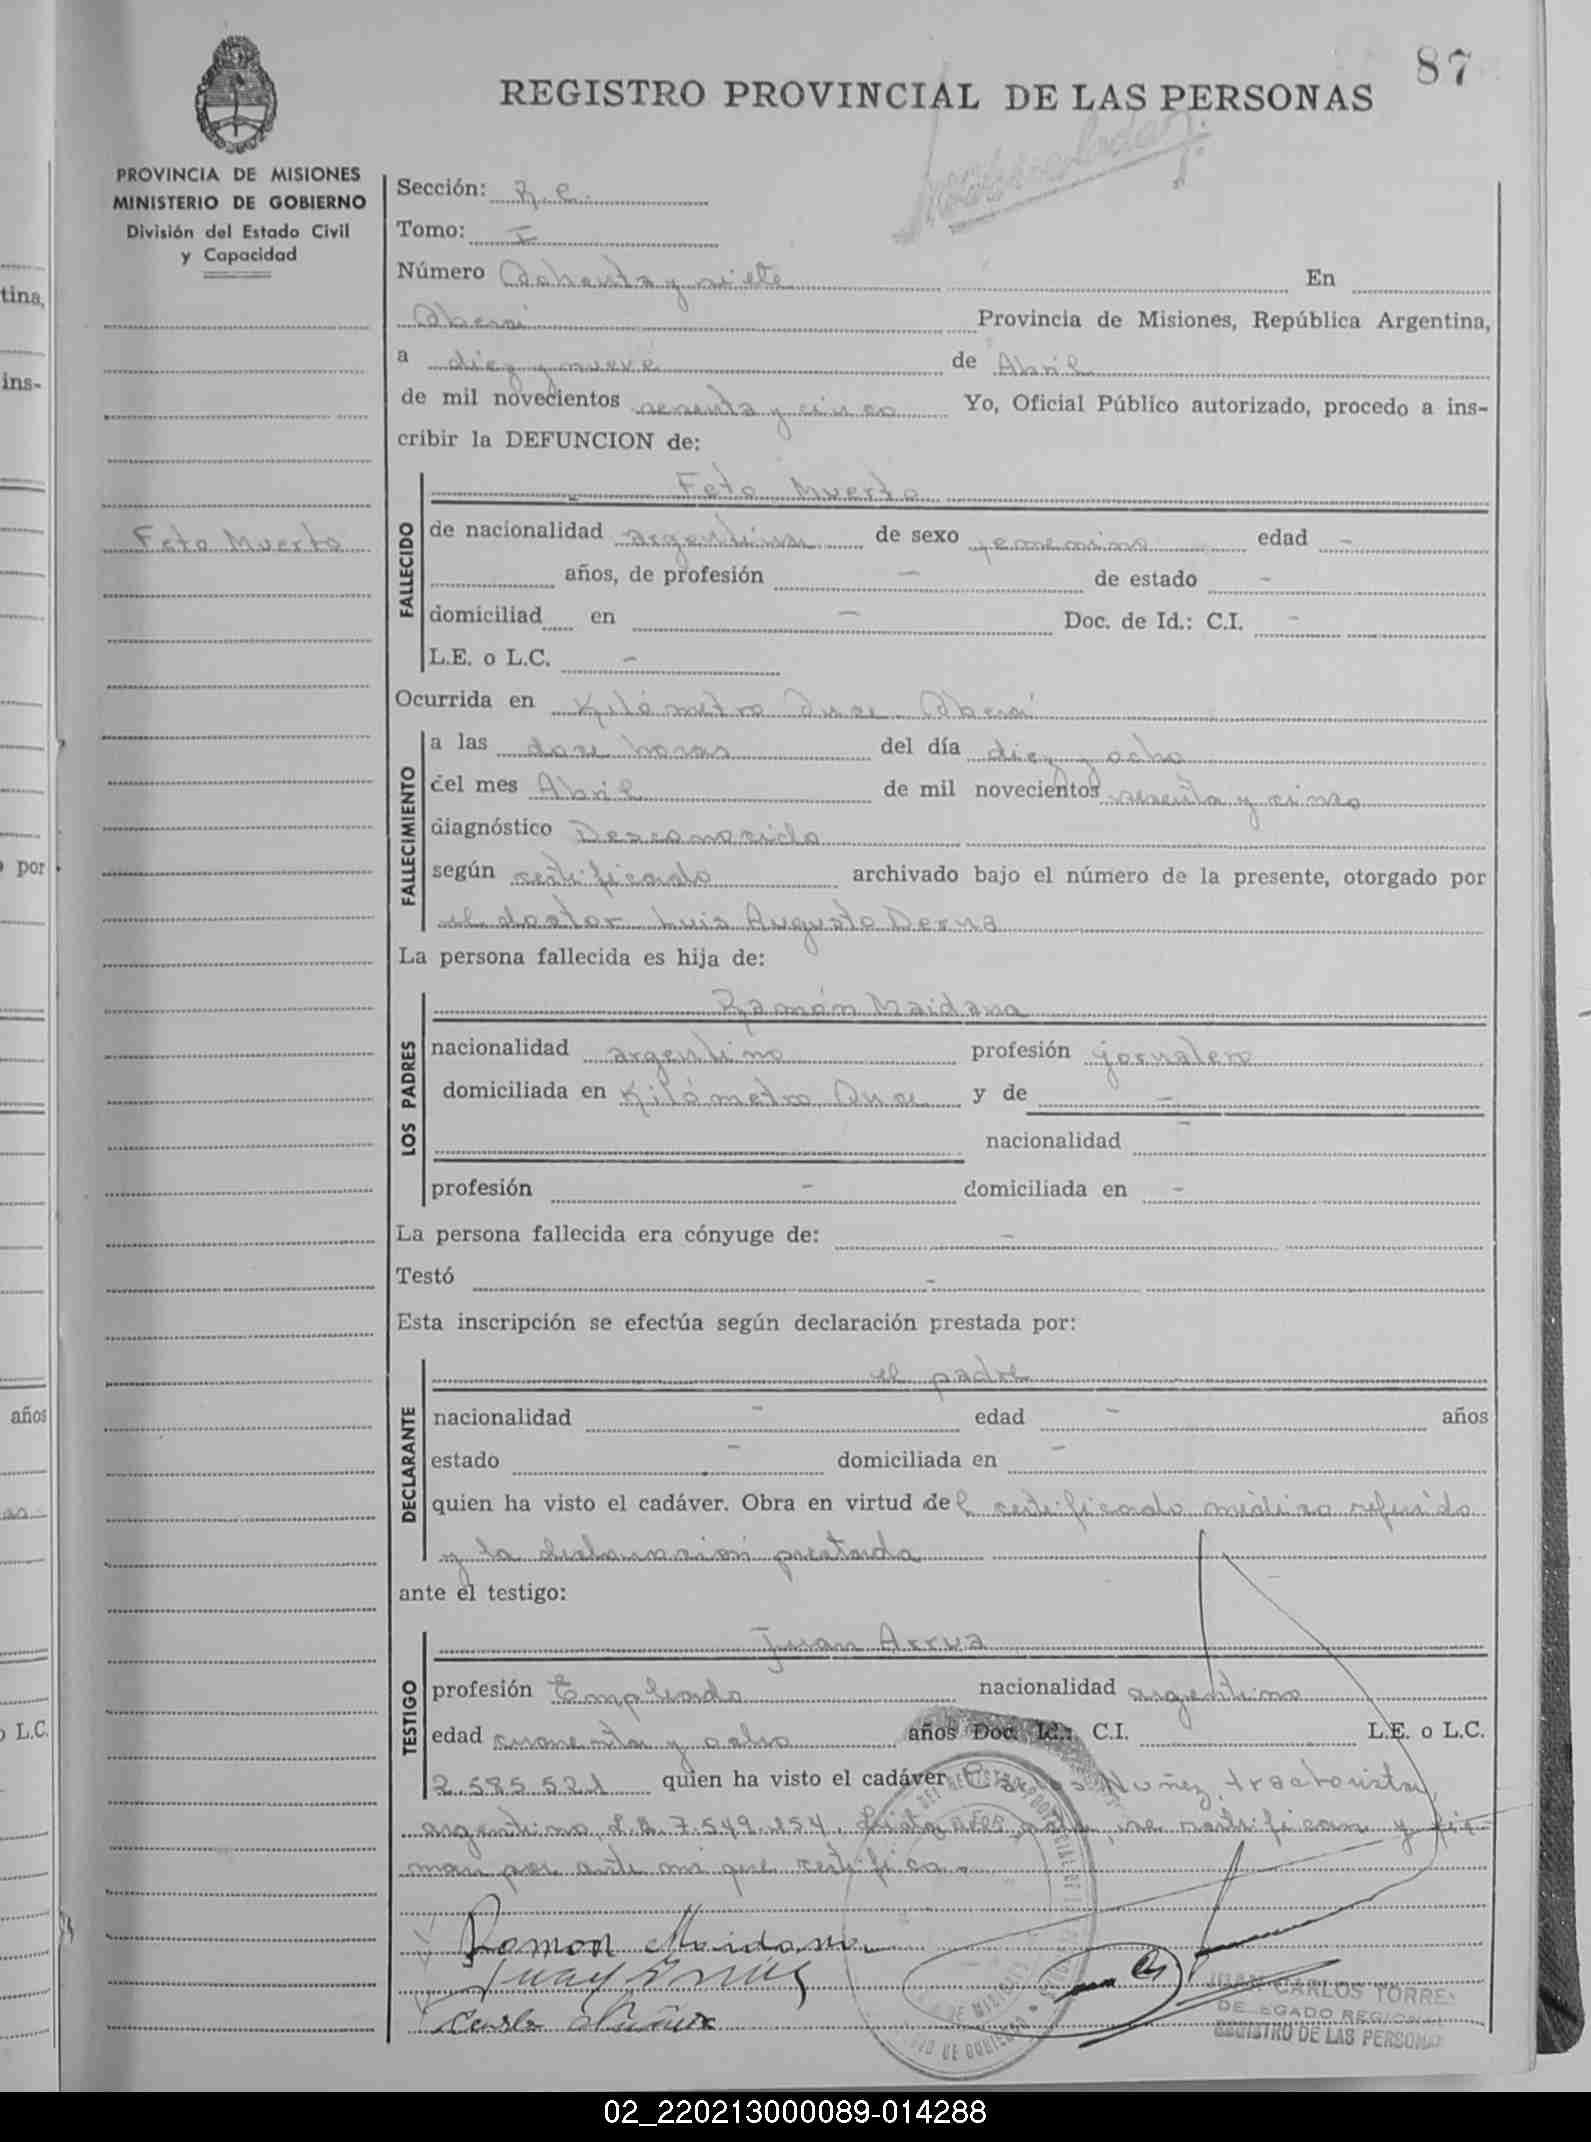 87
REGISTRO PROVINCIAL DE LAS PERSONAS
PROVINCIA DE MISIONES
MINISTERIO DE GOBIERNO
División del Estado Civil
y Capacidad
Sección: R.C.
Tomo: I
Número Ochenta y siete En
Oberá Provincia de Misiones, República Argentina,
a diez y nueve de Abril
de mil novecientos sesenta y cinco Yo, Oficial Público autorizado, procedo a ins-
cribir la DEFUNCION de:
Feto Muerto
Feto Muerto
FALLECIDO
de nacionalidad argentina de sexo femenino edad -
años, de profesión - de estado -
domiciliad en - Doc. de Id.: C.I. -
L.E. o L.C. -
Ocurrida en Kilómetro Once Oberá
FALLECIMIENTO
a las doce horas del día diez y ocho
del mes Abril de mil novecientos sesenta y cinco
diagnóstico Desconocido
según certificado archivado bajo el número de la presente, otorgado por
el doctor Luis Augusto Derna
La persona fallecida es hija de:
LOS PADRES
Ramón Maidana
nacionalidad argentino profesión jornalero
domiciliada en Kilómetro Once y de -
nacionalidad -
profesión - domiciliada en -
La persona fallecida era cónyuge de: -
Testó -
Esta inscripción se efectúa según declaración prestada por:
DECLARANTE
el padre
nacionalidad - edad - años
estado - domiciliada en -
quien ha visto el cadáver. Obra en virtud del certificado médico referido
y la declaración prestada
ante el testigo:
TESTIGO
Juan Arrua
profesión Empleado nacionalidad argentino
edad cuarenta y ocho años Doc. Id.: C.I. L.E. o L.C.
2.585.521 quien ha visto el cadáver Carlos Nuñez, tractorista,
argentino, L.E. 7.549.854. Leida acta, se ratifican y fir-
man por ante mi que certifico.
Ramon Maidana
Carlos Nuñez
JUAN CARLOS TORRES
DELEGADO REGIONAL
REGISTRO DE LAS PERSONAS
tina,
ins-
por
años
L.C.
02_220213000089-014288